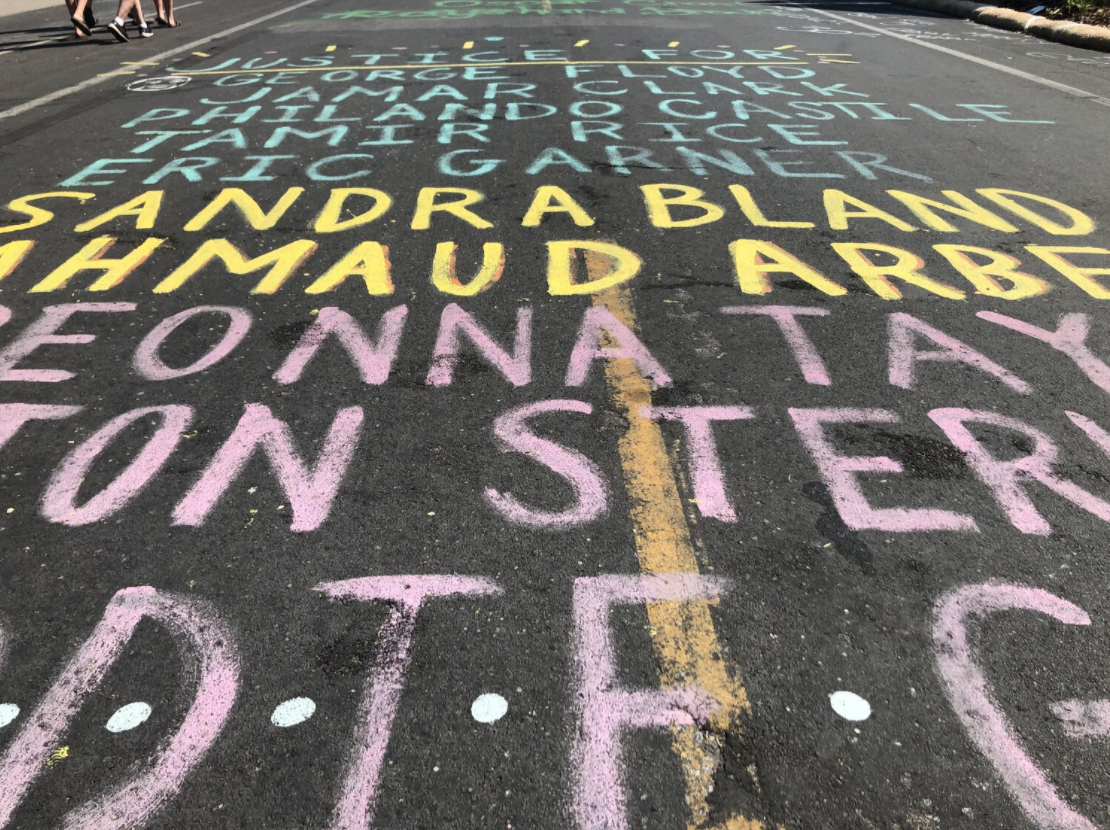 JUSTICE FOR
GEORGE FLOYD
JAMAR CLARK
PHILANDO CASTILE
TAMIR RICE
ERIC GARNER
SANDRA BLAND
AHMAUD ARBE
REONNA TAY
TON STER